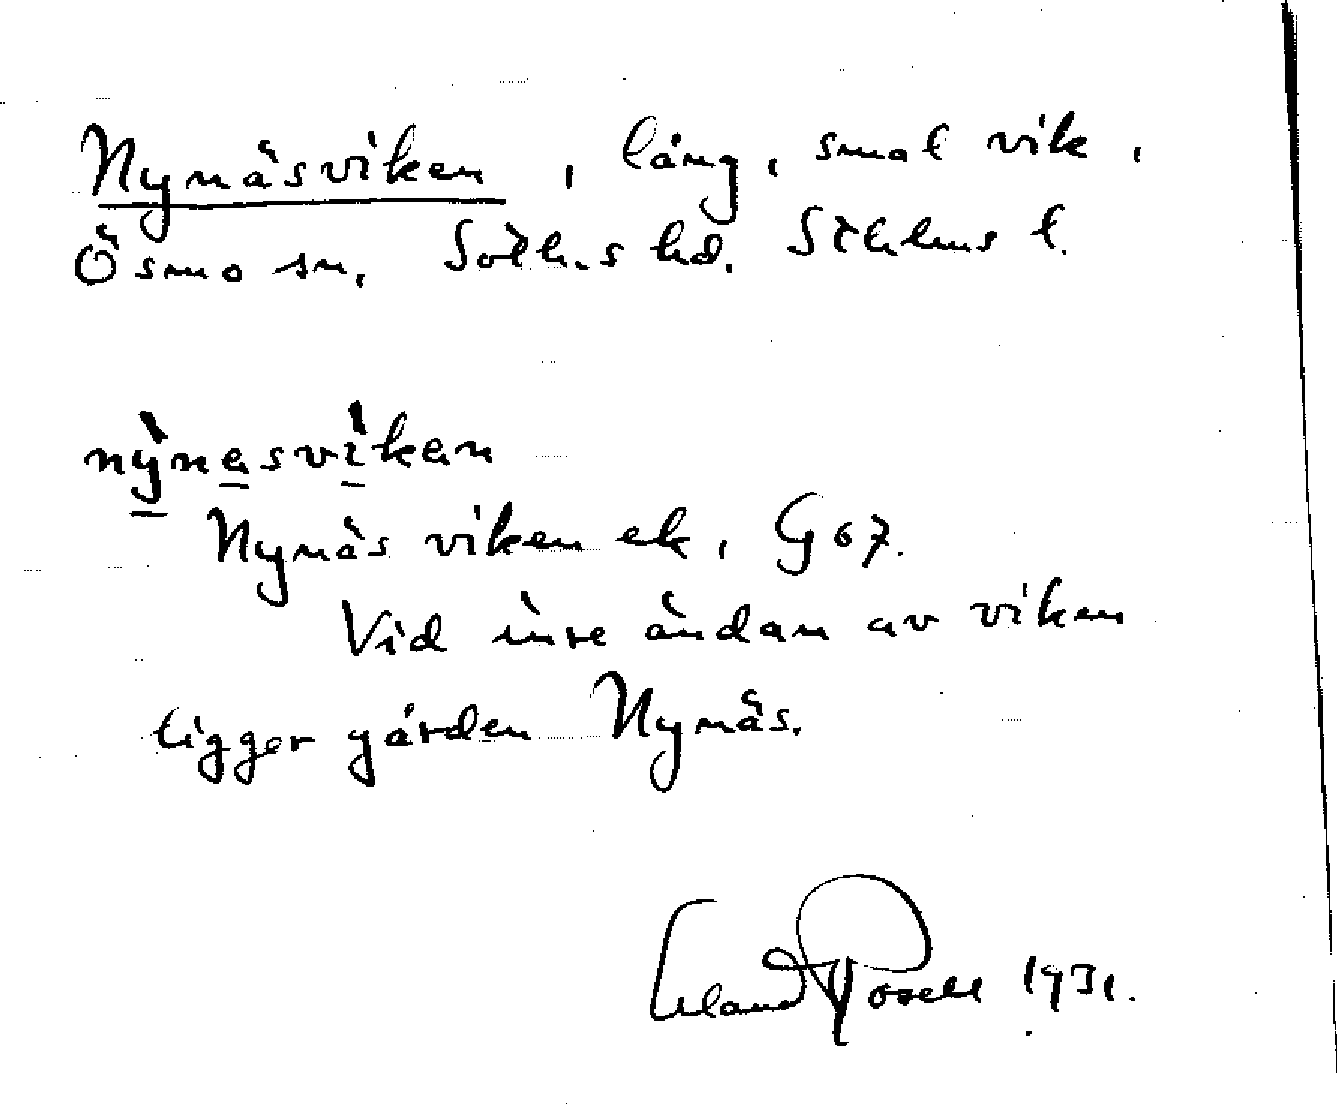 Nynäsviken, lång, smal vik,
Ösmo sn, Soth.s hd. Sthlms l.
nỳnasvìken
Nynäsviken ek, G 67.
Vid inre ändan av viken
ligger gården Nynäs.
Erland Rosell 1931.